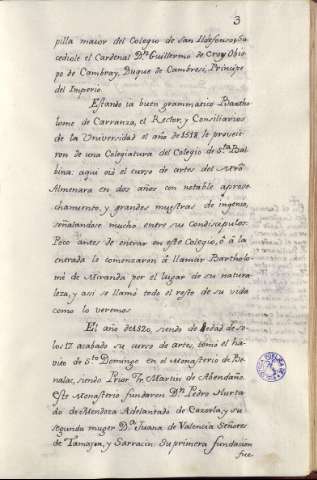 3
pilla maior del Colegio de San Ildefonso; Su
cediole el Cardenal Dn. Guillermo de Croy Obis-
po de Cambray, Duque de Cambresi, Principe
del Imperio.
Estando ia buen grammatico Bartho
lome de Carranza, el Rector, y Consiliarios
de la Universidad el año de 1518, le proveie
ron de una Colegiatura del Colegio de Sta. Bal
bina: aqui oió el curso de artes del Mro.
Almenara en dos años con notable aprove
chamiento, y grandes muestras de ingenio,
señalandose mucho entre sus Condiscipulos.
Poco antes de entrar en este Colegio, ò à la
entrada le comenzaron à llamár Bartholo-
mé de Miranda por el lugar de su natura
leza, y asi se llamó todo el resto de su vida
como lo veremos
El año de 1520, siendo de edad de so
los 17 acabado su curso de artes, tomó el ha-
vito de Sto. Domingo en el Monasterio de Be
nalac, siendo Prior Fr. Martin de Abendaño.
Este Monasterio fundaron Dn. Pedro Hurta
do de Mendoza Adelantado de Cazorla, y su
segunda muger Da. Juana de Valencia Señores
de Tamajon, y Sarracin. Su primera fundacion
fue